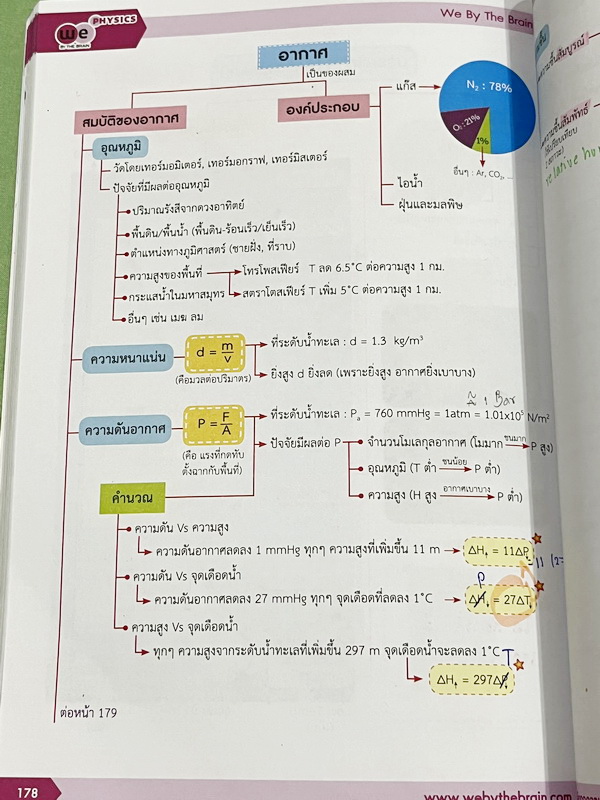 we PHYSICS
BY THE BRAIN
We By The Brain
อากาศ
เป็นของผสม
สมบัติของอากาศ
องค์ประกอบ
แก๊ส
N₂ : 78%
O₂ : 21%
1%
อื่นๆ : Ar, CO₂, ...
ไอน้ำ
ฝุ่นและมลพิษ
อุณหภูมิ
วัดโดยเทอร์มอมิเตอร์, เทอร์มอกราฟ, เทอร์มิสเตอร์
ปัจจัยที่มีผลต่ออุณหภูมิ
ปริมาณรังสีจากดวงอาทิตย์
พื้นดิน/พื้นน้ำ (พื้นดิน-ร้อนเร็ว/เย็นเร็ว)
ตำแหน่งทางภูมิศาสตร์ (ชายฝั่ง, ที่ราบ)
ความสูงของพื้นที่
โทรโพสเฟียร์ T ลด 6.5°C ต่อความสูง 1 กม.
กระแสน้ำในมหาสมุทร
สตราโตสเฟียร์ T เพิ่ม 5°C ต่อความสูง 1 กม.
อื่นๆ เช่น เมฆ ลม
ความหนาแน่น
d = m/v
(คือมวลต่อปริมาตร)
ที่ระดับน้ำทะเล : d = 1.3 kg/m³
ยิ่งสูง d ยิ่งลด (เพราะยิ่งสูง อากาศยิ่งเบาบาง)
1 Bar
ความดันอากาศ
P = F/A
(คือ แรงที่กดทับ
ตั้งฉากกับพื้นที่)
ที่ระดับน้ำทะเล : Pₐ = 760 mmHg = 1atm = 1.01x10⁵ N/m²
ปัจจัยมีผลต่อ P
จำนวนโมเลกุลอากาศ (โมมาก ชนมาก P สูง)
อุณหภูมิ (T ต่ำ ชนน้อย P ต่ำ)
ความสูง (H สูง อากาศเบาบาง P ต่ำ)
คำนวณ
ความดัน Vs ความสูง
ความดันอากาศลดลง 1 mmHg ทุกๆ ความสูงที่เพิ่มขึ้น 11 m
ΔH↑ = 11ΔP
ความดัน Vs จุดเดือดน้ำ
P
ความดันอากาศลดลง 27 mmHg ทุกๆ จุดเดือดที่ลดลง 1°C
ΔH↓ = 27ΔT
ความสูง Vs จุดเดือดน้ำ
ทุกๆ ความสูงจากระดับน้ำทะเลที่เพิ่มขึ้น 297 m จุดเดือดน้ำจะลดลง 1°C
T
ΔH↑ = 297ΔP
ต่อหน้า 179
178
www.webythebrain.com